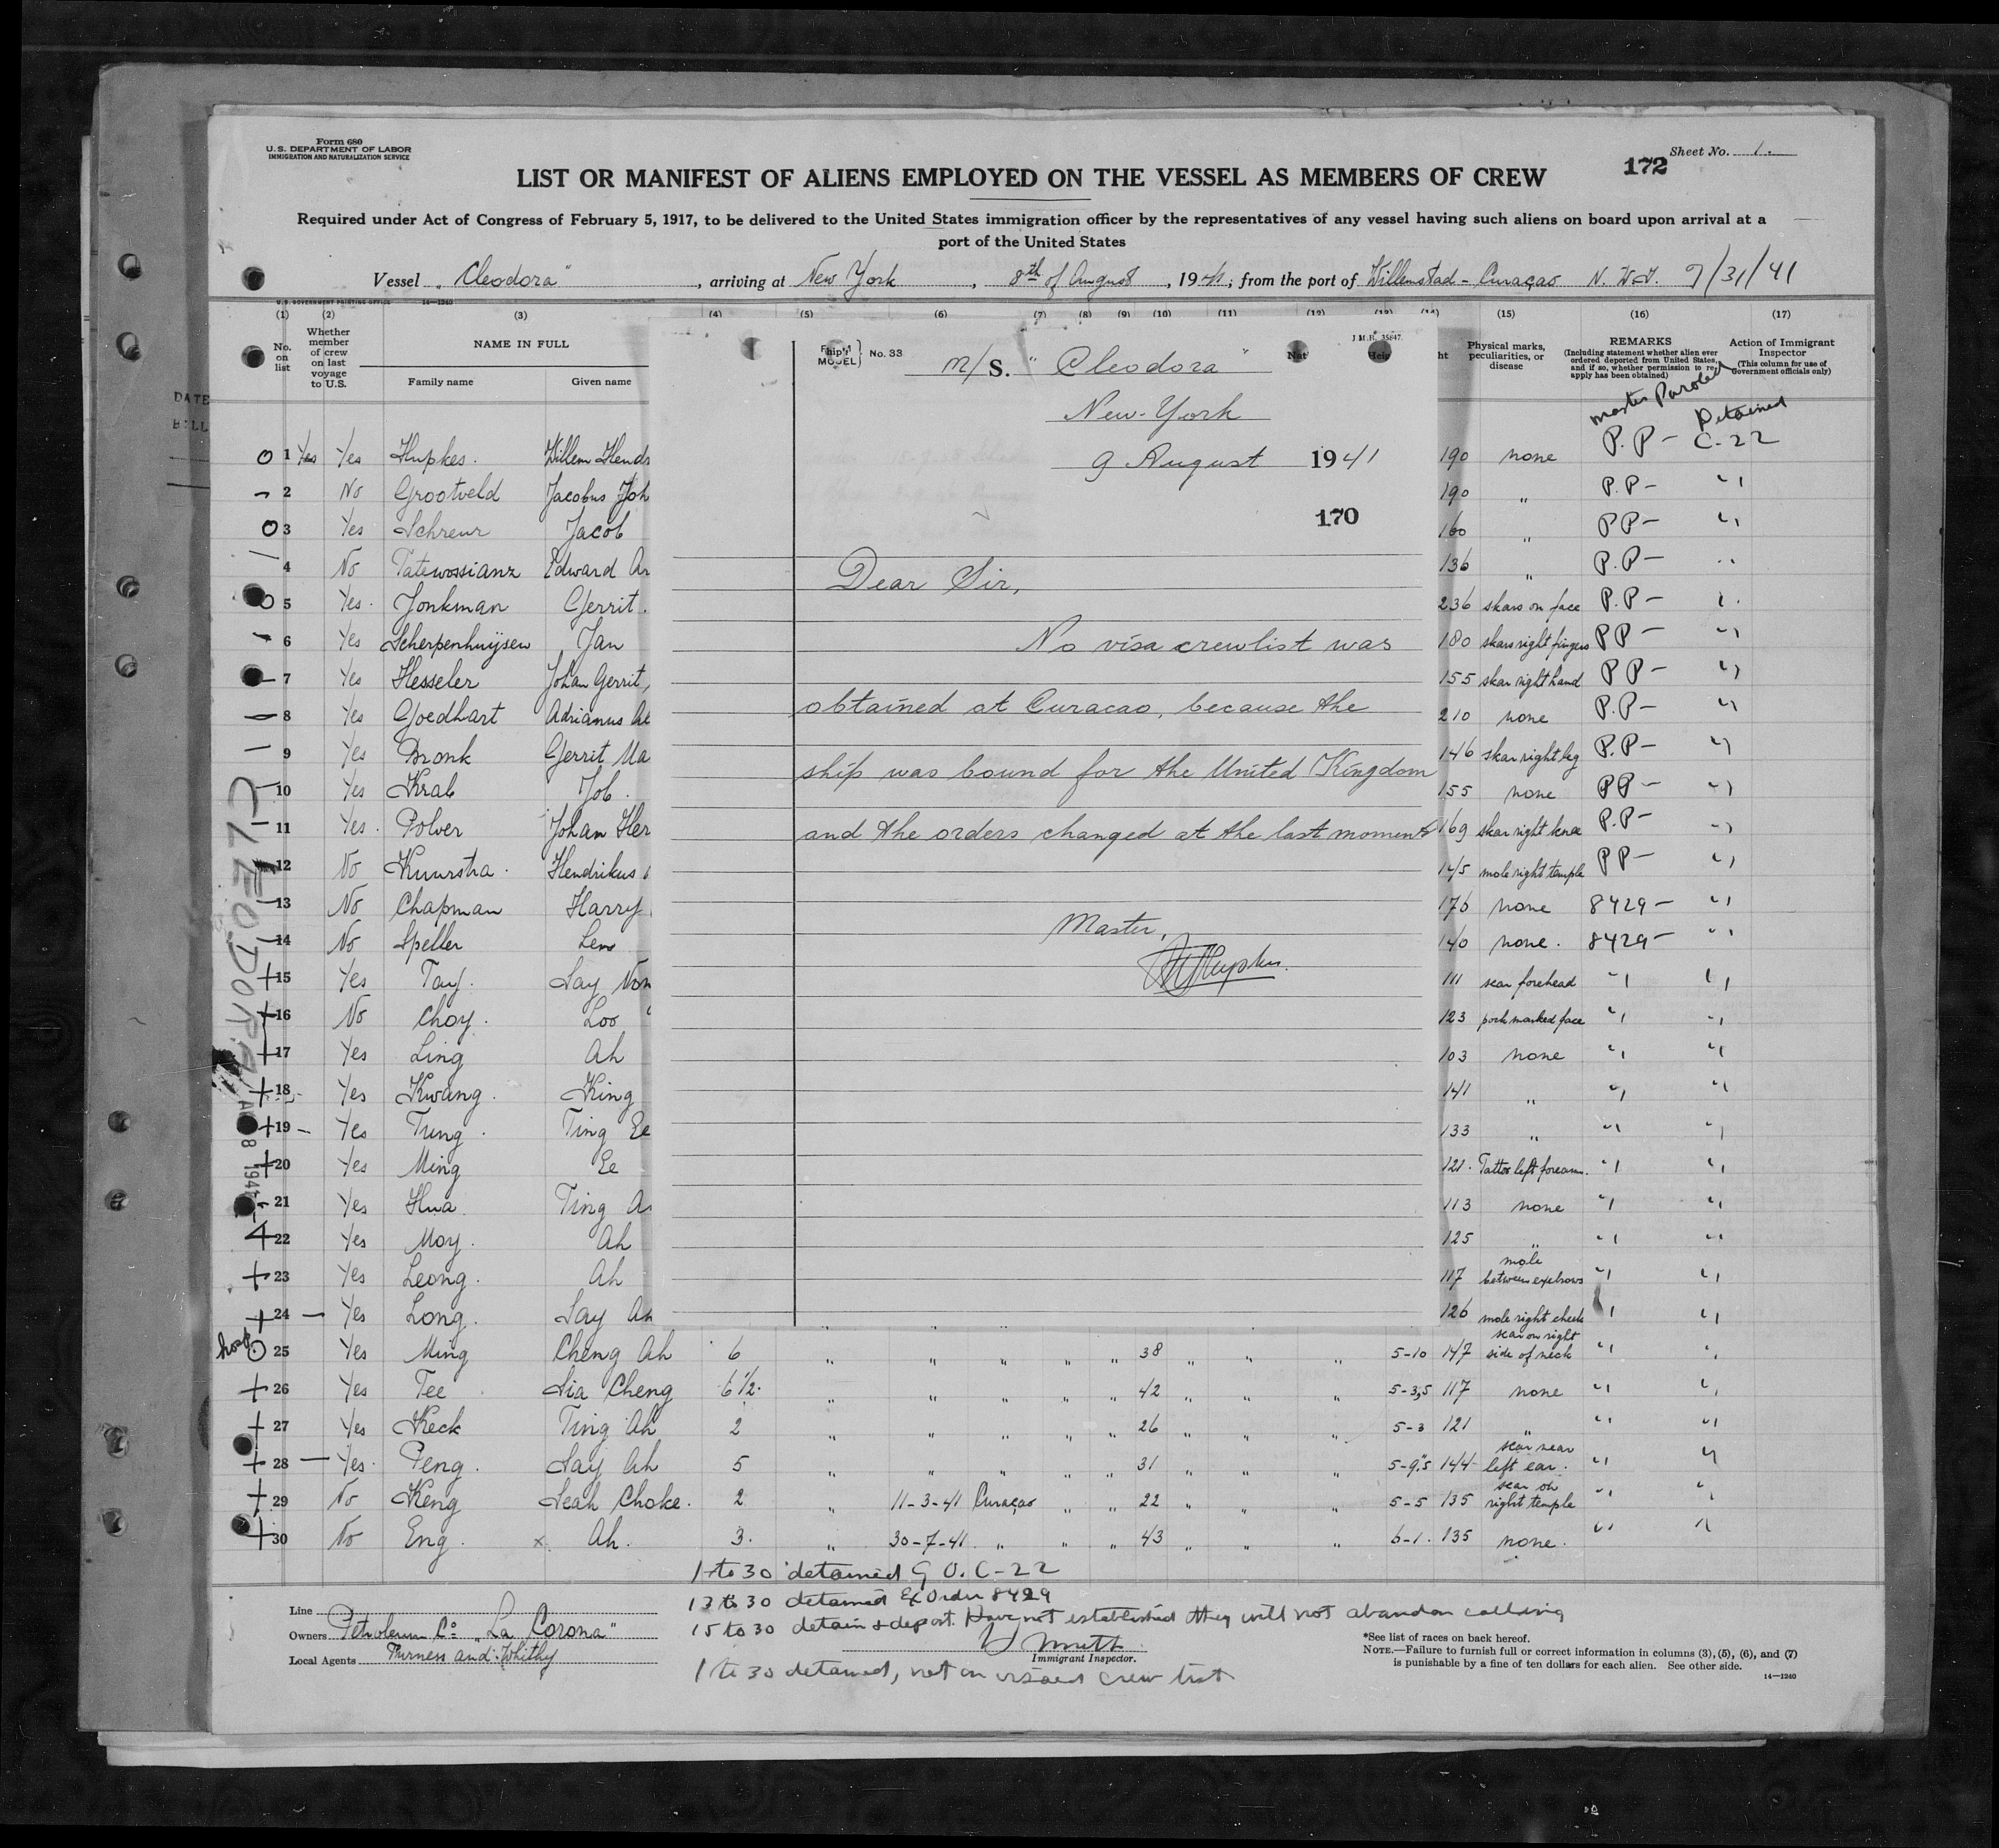 Form 680
U.S. DEPARTMENT OF LABOR
IMMIGRATION AND NATURALIZATION SERVICE
Sheet No. 1.
172
LIST OR MANIFEST OF ALIENS EMPLOYED ON THE VESSEL AS MEMBERS OF CREW
Required under Act of Congress of February 5, 1917, to be delivered to the United States immigration officer by the representatives of any vessel having such aliens on board upon arrival at a
port of the United States
Vessel „Cleodora" , arriving at New York , 8th of August , 1941; from the port of Willemstad - Curaçao N.W.I. 7/31/41
U.S. GOVERNMENT PRINTING OFFICE 14—1240
(1) (2) (3) (4) (5) (6) (7) (8) (9) (10) (11) (12) (13) (14) (15) (16) (17)
No. on list
Whether member of crew on last voyage to U.S.
NAME IN FULL
Family name Given name
ht
Physical marks, peculiarities, or disease
REMARKS
(Including statement whether alien ever ordered deported from United States, and if so, whether permission to reapply has been obtained)
Action of Immigrant Inspector
(This column for use of Government officials only)
DATE
master Paroled
Detained
1 Yes Yes Hupkes. Willem Hend 190 none P.P— C-22
2 No Grootveld Jacobus Joh 190 „ P.P— "
3 Yes Schreur Jacob 160 „ PP— "
4 No Tatewossianz Edward Ar 136 „ P.P— "
5 Yes. Jonkman Gerrit. 236 skars on face P.P— "
6 Yes Scherpenhuijsen Jan 180 skars right fingers PP— "
7 Yes Hesseler Johan Gerrit, 155 skar right hand PP— "
8 Yes Goedhart Adrianus 210 none P.P— "
9 Yes Bronk Gerrit Ma 146 skar right leg P.P— "
10 Yes Krab Job. 155 none PP— "
11 Yes. Polver Johan Her 169 skar right knee P.P— "
12 No Kuurstra. Hendrikus 145 mole right temple PP— "
13 No Chapman Harry 176 none 8429— "
14 No Speller Len 140 none. 8429— "
15 Yes Tay. Say 111 scar forehead " "
16 No Choy. Loo 123 pock marked face " "
17 Yes Ling Ah 103 none " "
18 Yes Kwang. King 141 „ " "
19 — Yes Tung. Ting Ee 133 „ " "
20 Yes Ming Ee 121. Tattoo left forearm. " "
21 Yes Hua. Ting A 113 none " "
22 Yes Moy. Ah 125 „ " "
23 Yes Leong. Ah 117 mole between eyebrows " "
24 — Yes Long. Say Ah 126 mole right cheek " "
hosp 25 Yes Ming Cheng Ah 6 „ „ „ „ „ 38 „ „ „ 5-10 147 scar on right side of neck " "
26 Yes Tee Sia Cheng 6 1/2. „ „ „ „ „ 42 „ „ „ 5-3,5 117 none " "
27 Yes Keck Ting Ah 2 „ „ „ „ „ 26 „ „ „ 5-3 121 „ " "
28 — Yes. Peng. Say Ah 5 „ „ „ „ „ 31 „ „ „ 5-9,5 144 scar near left ear. " "
29 No Keng Seah Choke. 2 „ 11-3-41 Curaçao „ „ 22 „ „ „ 5-5 135 scar on right temple " "
30 No Eng. x Ah. 3. „ 30-7-41. „ „ „ 43 „ „ „ 6-1. 135 none. " "
CLEODORA
8 1941
No. 33
J.M.R. 35847.
M/S. "Cleodora"
New-York
9 August 1941
170
Dear Sir,
No visa crewlist was
obtained at Curacao, because the
ship was bound for the United Kingdom
and the orders changed at the last moment
Master,
WHupkes.
1 to 30 detained G O. C-22
13 to 30 detained Ex Order 8429
15 to 30 detain & deport. Have not established they will not abandon calling
Immigrant Inspector.
1 to 30 detained, not on visaed crew list
Line
Owners Petroleum Co „La Corona"
Local Agents Furness and Whithy
*See list of races on back hereof.
NOTE.—Failure to furnish full or correct information in columns (3), (5), (6), and (7)
is punishable by a fine of ten dollars for each alien. See other side.
14—1240